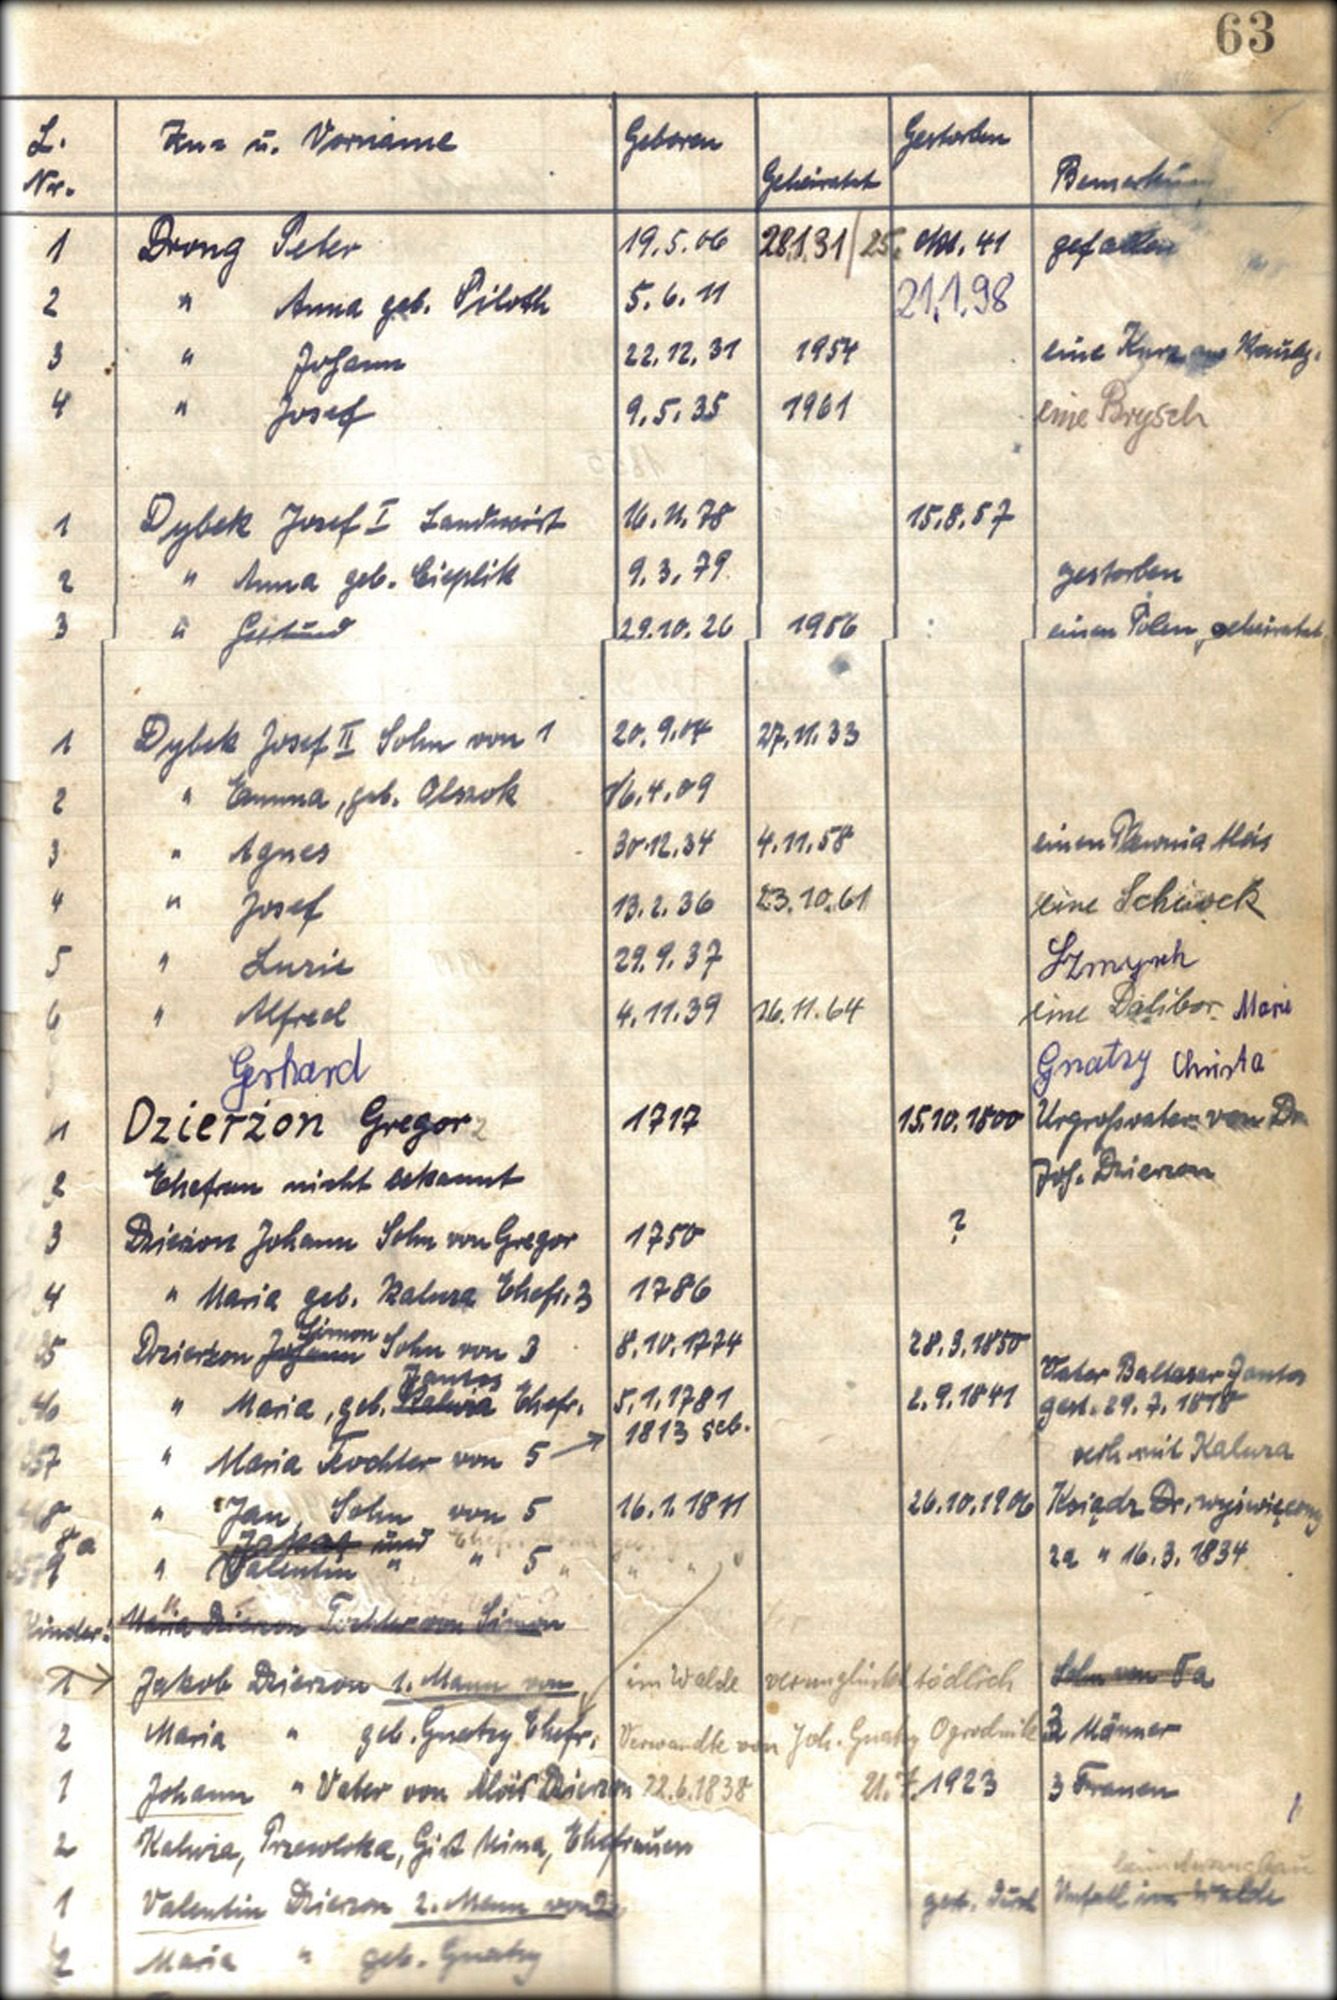 63
L. Nr. Zu= u. Vorname Geboren Geheiratet Gestorben Bemerkung
1 Drong Peter 19.5.06 28.1.31 25. Okt. 41 gefallen
2 " Anna geb. Piloth 5.6.11 21.1.98
3 " Johann 22.12.31 1954 eine Kurz aus
4 " Josef 9.5.35 1961 eine Brysch
1 Dybek Josef I Landwirt 16.11.78 15.8.57
2 " Anna geb. Cieplik 9.3.79. gestorben
3 " Gertrud 29.10.26 1956 einen Polen geheiratet
1 Dybek Josef II Sohn von 1 20.9.04 27.11.33
2 " Emma, geb. Olszok 16.4.09
3 " Agnes 30.12.34 4.11.58 einen Plewnia Alois
4 " Josef 13.2.36 23.10.61 eine
5 " Luzie 29.9.37
6 " Alfred 4.11.39 26.11.64 eine Dalibor Marie
Gerhard Gnatzy Christa
1 Dzierżon Gregor 1717 15.10.1800 Urgroßvater von Dr
2 Ehefrau nicht bekannt Joh. Dzierzon
3 Dzierżon Johann Sohn von Gregor 1750 ?
4 " Maria geb. Kaluza Ehefr. 3 1786
5 Dzierżon Johann Simon Sohn von 3 8.10.1774 28.3.1850
6 " Maria, geb. Kaluza Jantos Ehefr. 5.1.1781 2.9.1841 Vater Baltasar Jantos
gest. 29.7.1818
7 " Maria Tochter von 5 → 1813 geb. verh. mit Kaluza
8 " Jan, Sohn von 5 16.1.1811 26.10.1906 Ksiądz Dr. wyświęcony
8a Jakob und
9 " Valentin " " 5 za " 16.3.1834
Kinder: Maria Dzierzon Tochter von Simon
1 → Jakob Dzierzon 1. Mann von im Walde verunglückt tödlich Sohn von 8a
2 Maria " geb. Gnatzy Ehefr. Verwandte von Joh. Gnatzy Ogrodnik 2 Männer
1 Johann " Vater von Alois Dzierzon 22.6.1838 21.7.1923 3 Frauen
2 Kaluza, Przewloka, Mina, Ehefrauen
1 Valentin Dzierzon 2. Mann von 2 gest. durch Unfall im Walde
2 Maria " geb. Gnatzy